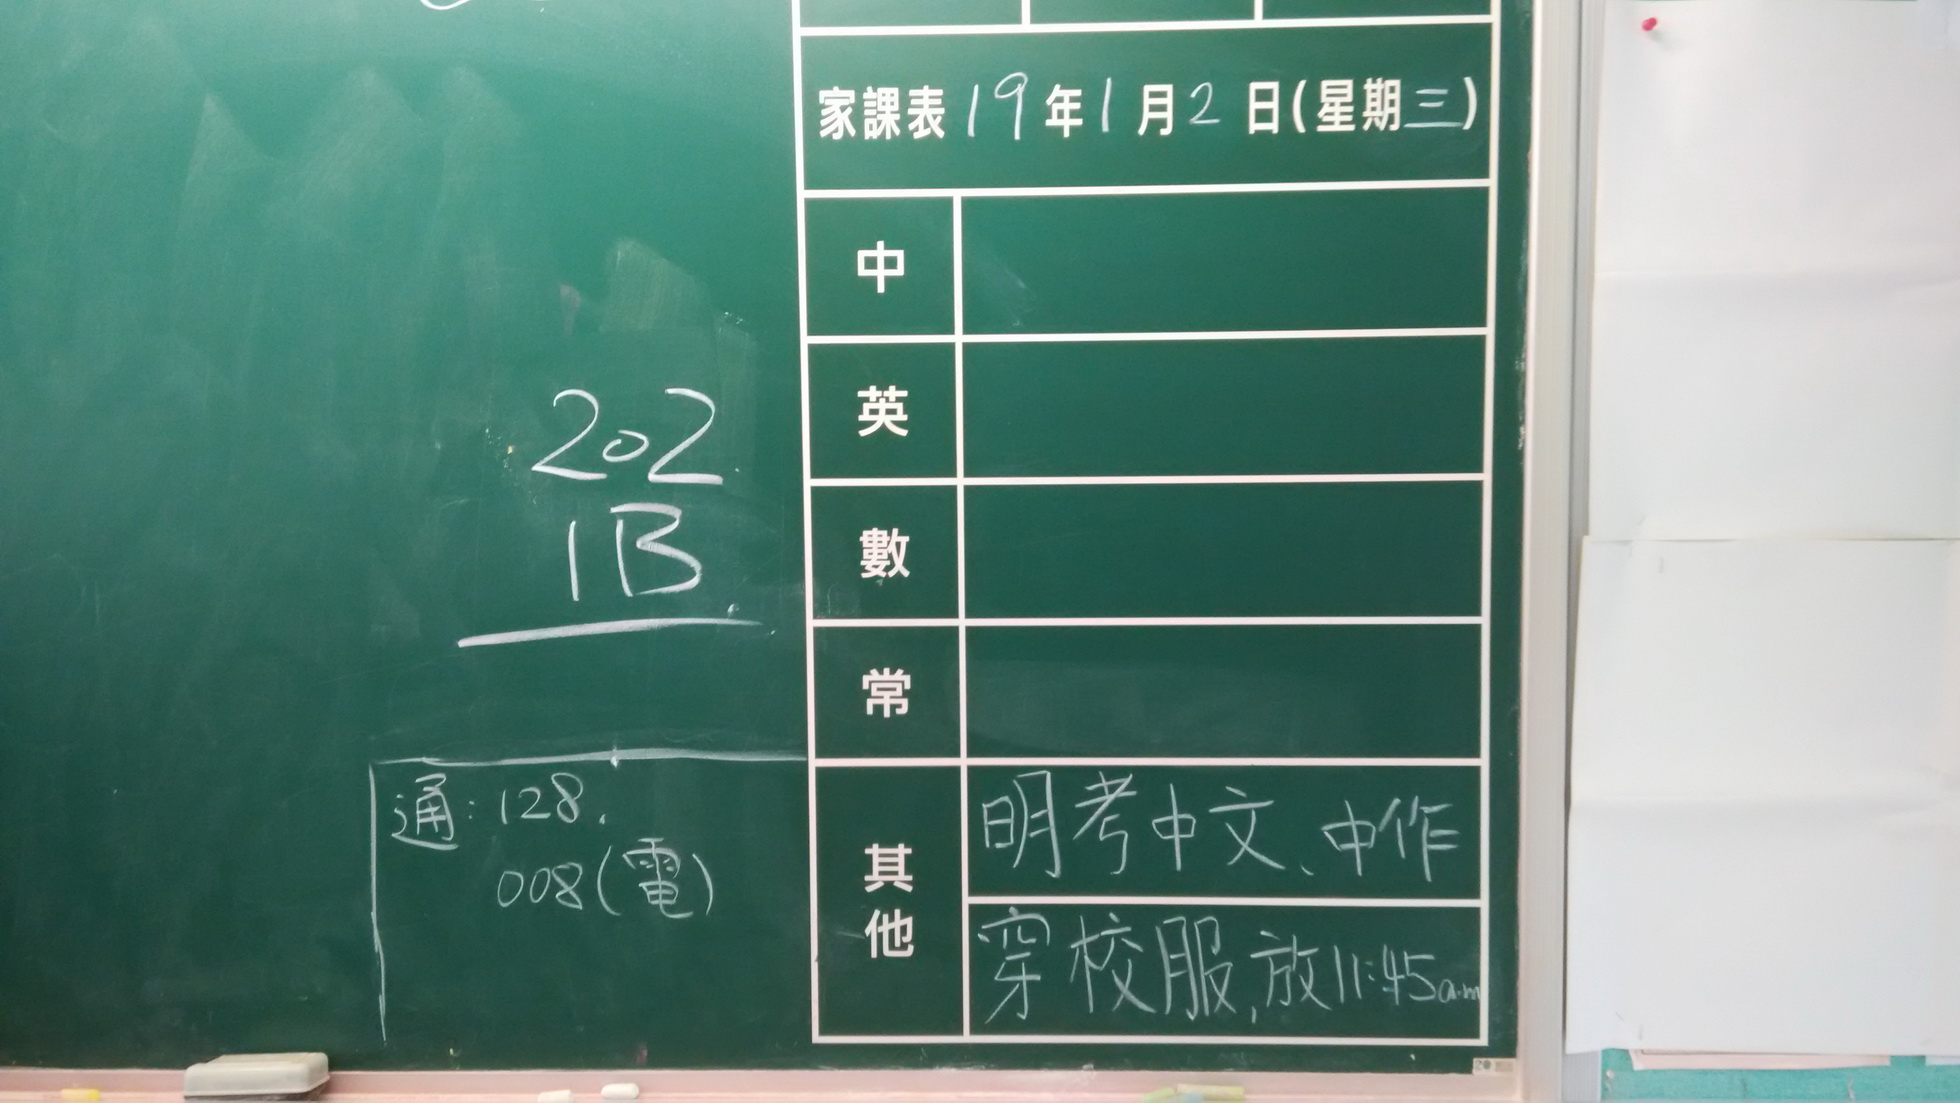 202
1B
通:128.
008(電)
家課表19年1月2日(星期三)
中
英
數
常
其他
明考中文、中作
穿校服,放11:45a.m